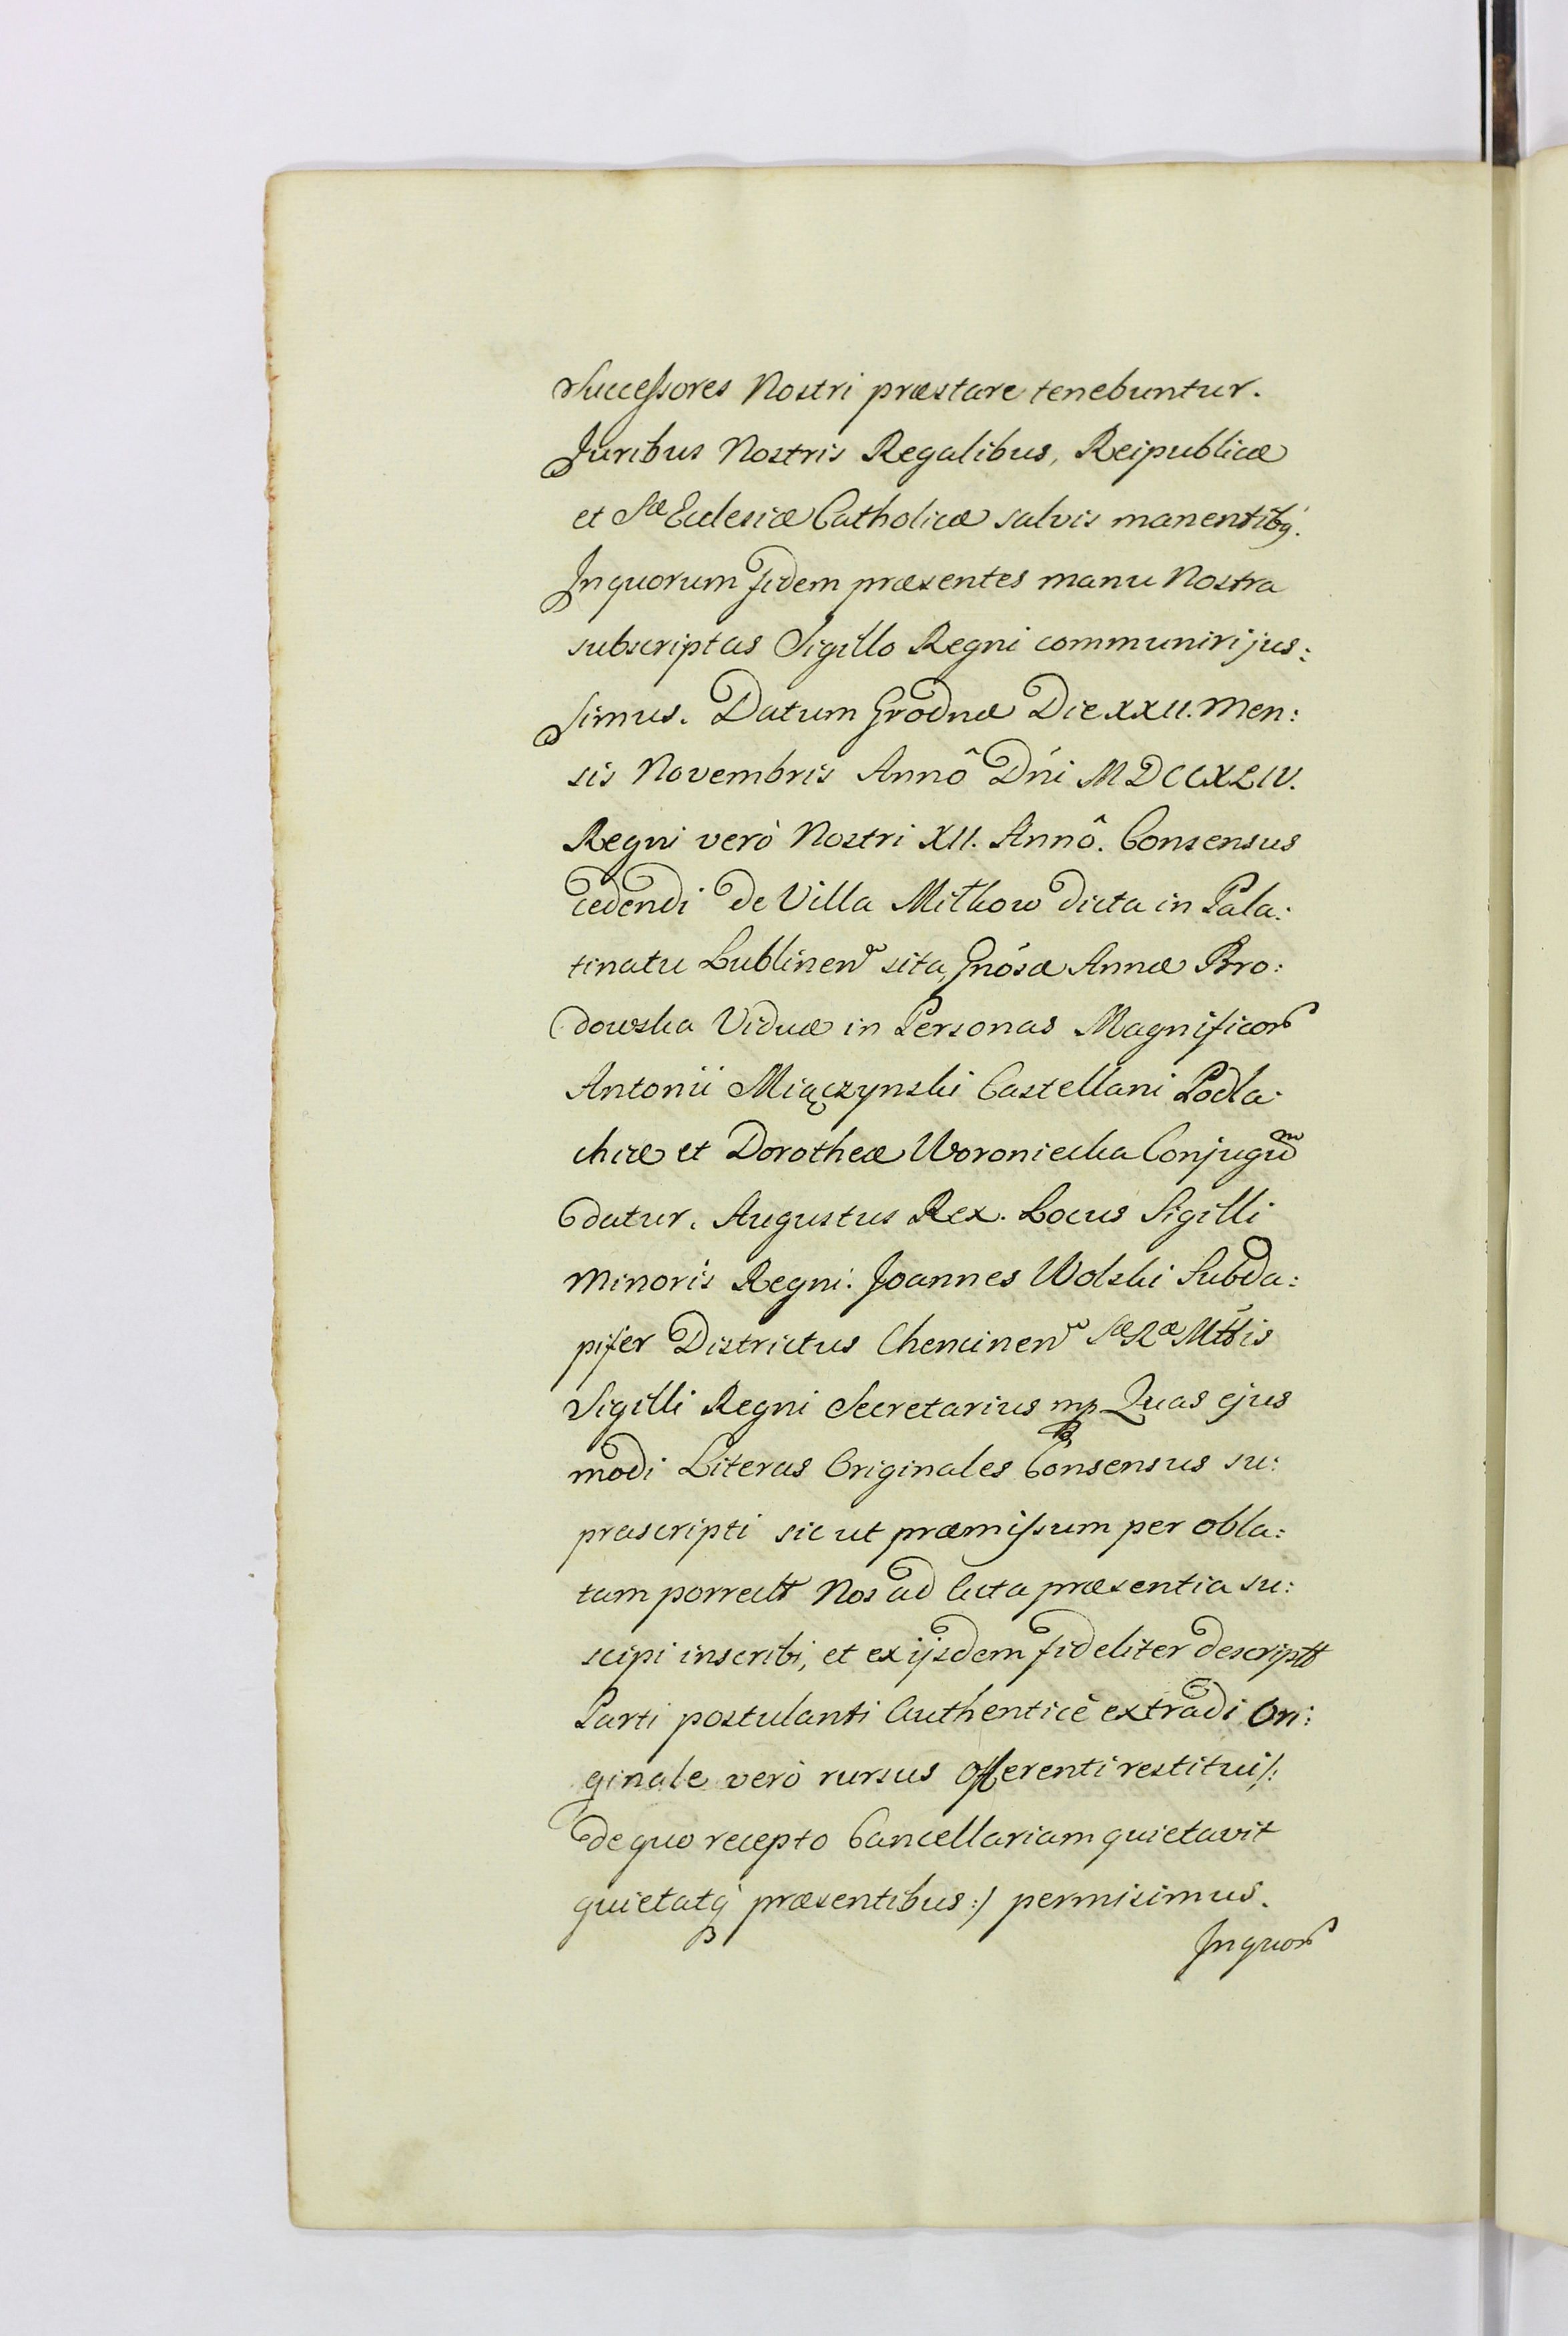 Successores Nostri præstare tenebuntur.
Juribus Nostris Regalibus, Reipublicæ
et Sæ Eclesiæ Catholicæ salvis manentibq.
In quorum fidem præsentes manu Nostra
subscriptas Sigillo Regni communiri jus:
simus. Datum Grodnæ Die XXII. Men:
sis Novembris Annô Dńi MDCCXLIV.
Regni verò Nostri XII. Annô. Consensus
cedendi de Villa Mitkow dicta in Pala:
tinatu Lublinen sita, Gnósæ Annæ Bro:
dowska Viduæ in Personas Magnificor
Antonii Miączynski Castellani Podla:
chiæ et Dorotheæ Woroniecka Conjugum
datur. Augustus Rex. Locus Sigilli
Minoris Regni. Joannes Wolski Subda:
pifer Districtus Chencinen Sæ Ræ Mttis
Sigilli Regni Secretarius mp Quas ejus
modi Literas Originales Consensus su:
prascripti sic ut præmissum per obla:
tam porrectt Nos ad Acta præsentia su:
scipi inscribi, et ex ijsdem fideliter descriptt
Parti postulanti Authenticè extradi Ori:
ginale verò rursus offerenti restitui /:
de quo recepto Cancellariam quietavit
quietatq præsentibus :/ permisimus.
In quor